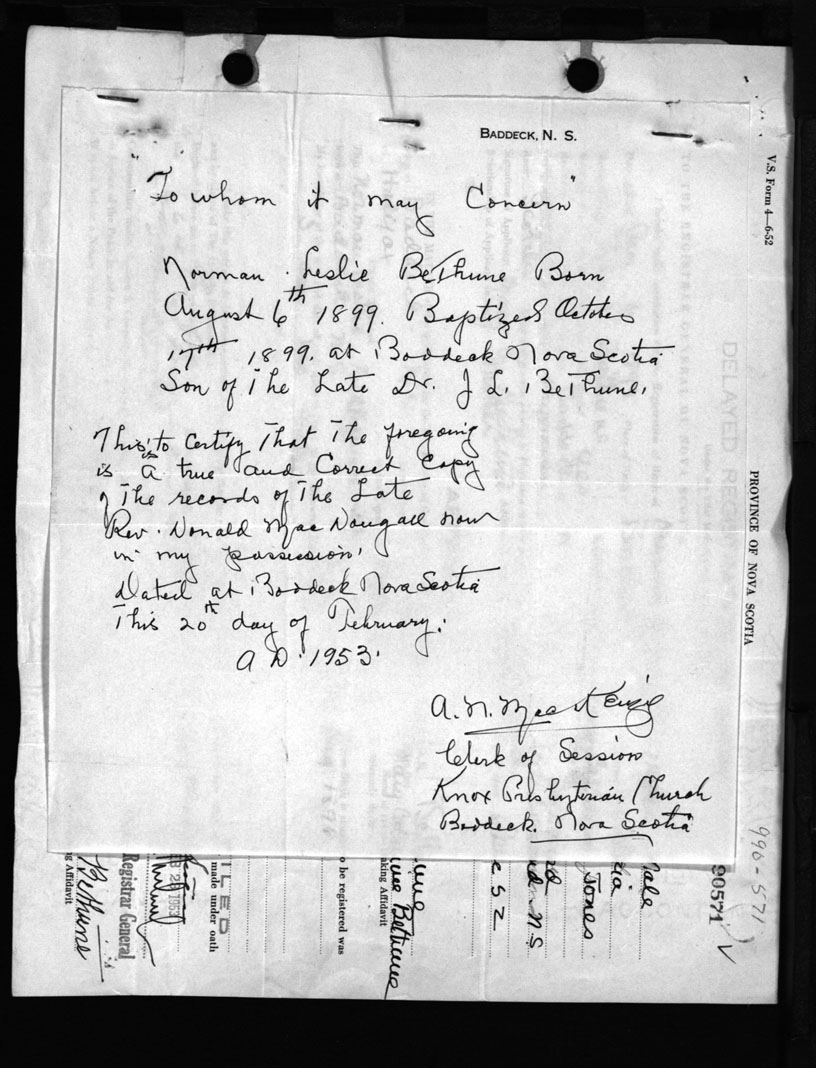 BADDECK, N. S.
"To whom it may Concern"
Norman Leslie Bethune Born
August 6th 1899. Baptized October
17th 1899. at Baddeck Nova Scotia
Son of The Late Dr. J L. BeThune.
This is to Certify That The foregoing
is a true and Correct Copy
of The records of The Late
Rev. Donald MacDougall now
in my possession.
Dated at Baddeck Nova Scotia
This 20th day of February.
A D. 1953.
A. N. MacKenzie
Clerk of Session
Knox Presbyterian Church
Baddeck. Nova Scotia
V.S. Form 4—6-52
PROVINCE OF NOVA SCOTIA
DELAYED
90571
990-571
Male
Jones
N.S
52
Bethune
aking Affidavit
o be registered was
TLED
made under oath
1953
Registrar General
ng Affidavit
Bethune